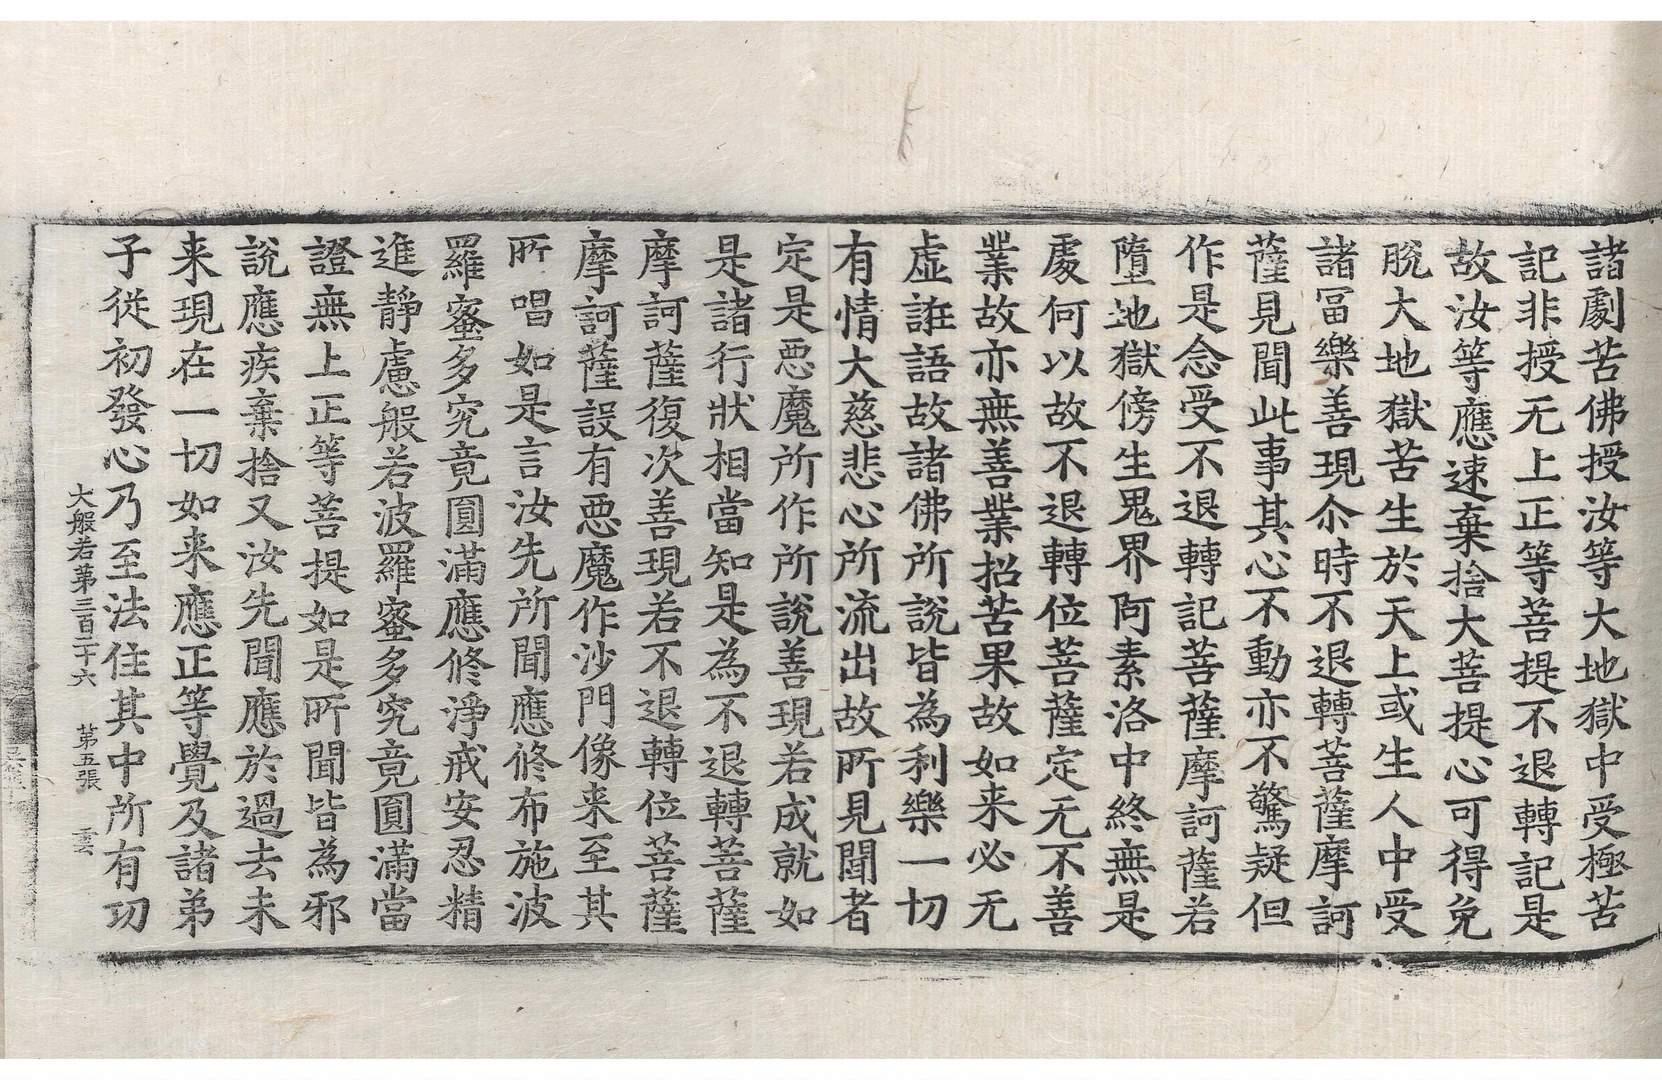 諸劇苦佛授汝等大地獄中受極苦
記非授无上正等菩提不退轉記是
故汝等應速棄捨大菩提心可得免
脫大地獄苦生於天上或生人中受
諸冨樂善現尒時不退轉菩薩摩訶
薩見聞此事其心不動亦不驚疑但
作是念受不退轉記菩薩摩訶薩若
墮地獄傍生鬼界阿素洛中終無是
處何以故不退轉位菩薩定无不善
業故亦無善業招苦果故如来必无
虛誑語故諸佛所說皆為利樂一切
有情大慈悲心所流出故所見聞者
定是惡魔所作所說善現若成就如
是諸行狀相當知是為不退轉菩薩
摩訶薩復次善現若不退轉位菩薩
摩訶薩設有惡魔作沙門像来至其
所唱如是言汝先所聞應修布施波
羅蜜多究竟圓滿應修淨戒安忍精
進靜慮般若波羅蜜多究竟圓滿當
證無上正等菩提如是所聞皆為邪
說應疾棄捨又汝先聞應於過去未
来現在一切如来應正等覺及諸弟
子從初發心乃至法住其中所有功
大般若第三百二十六 第五張 雲